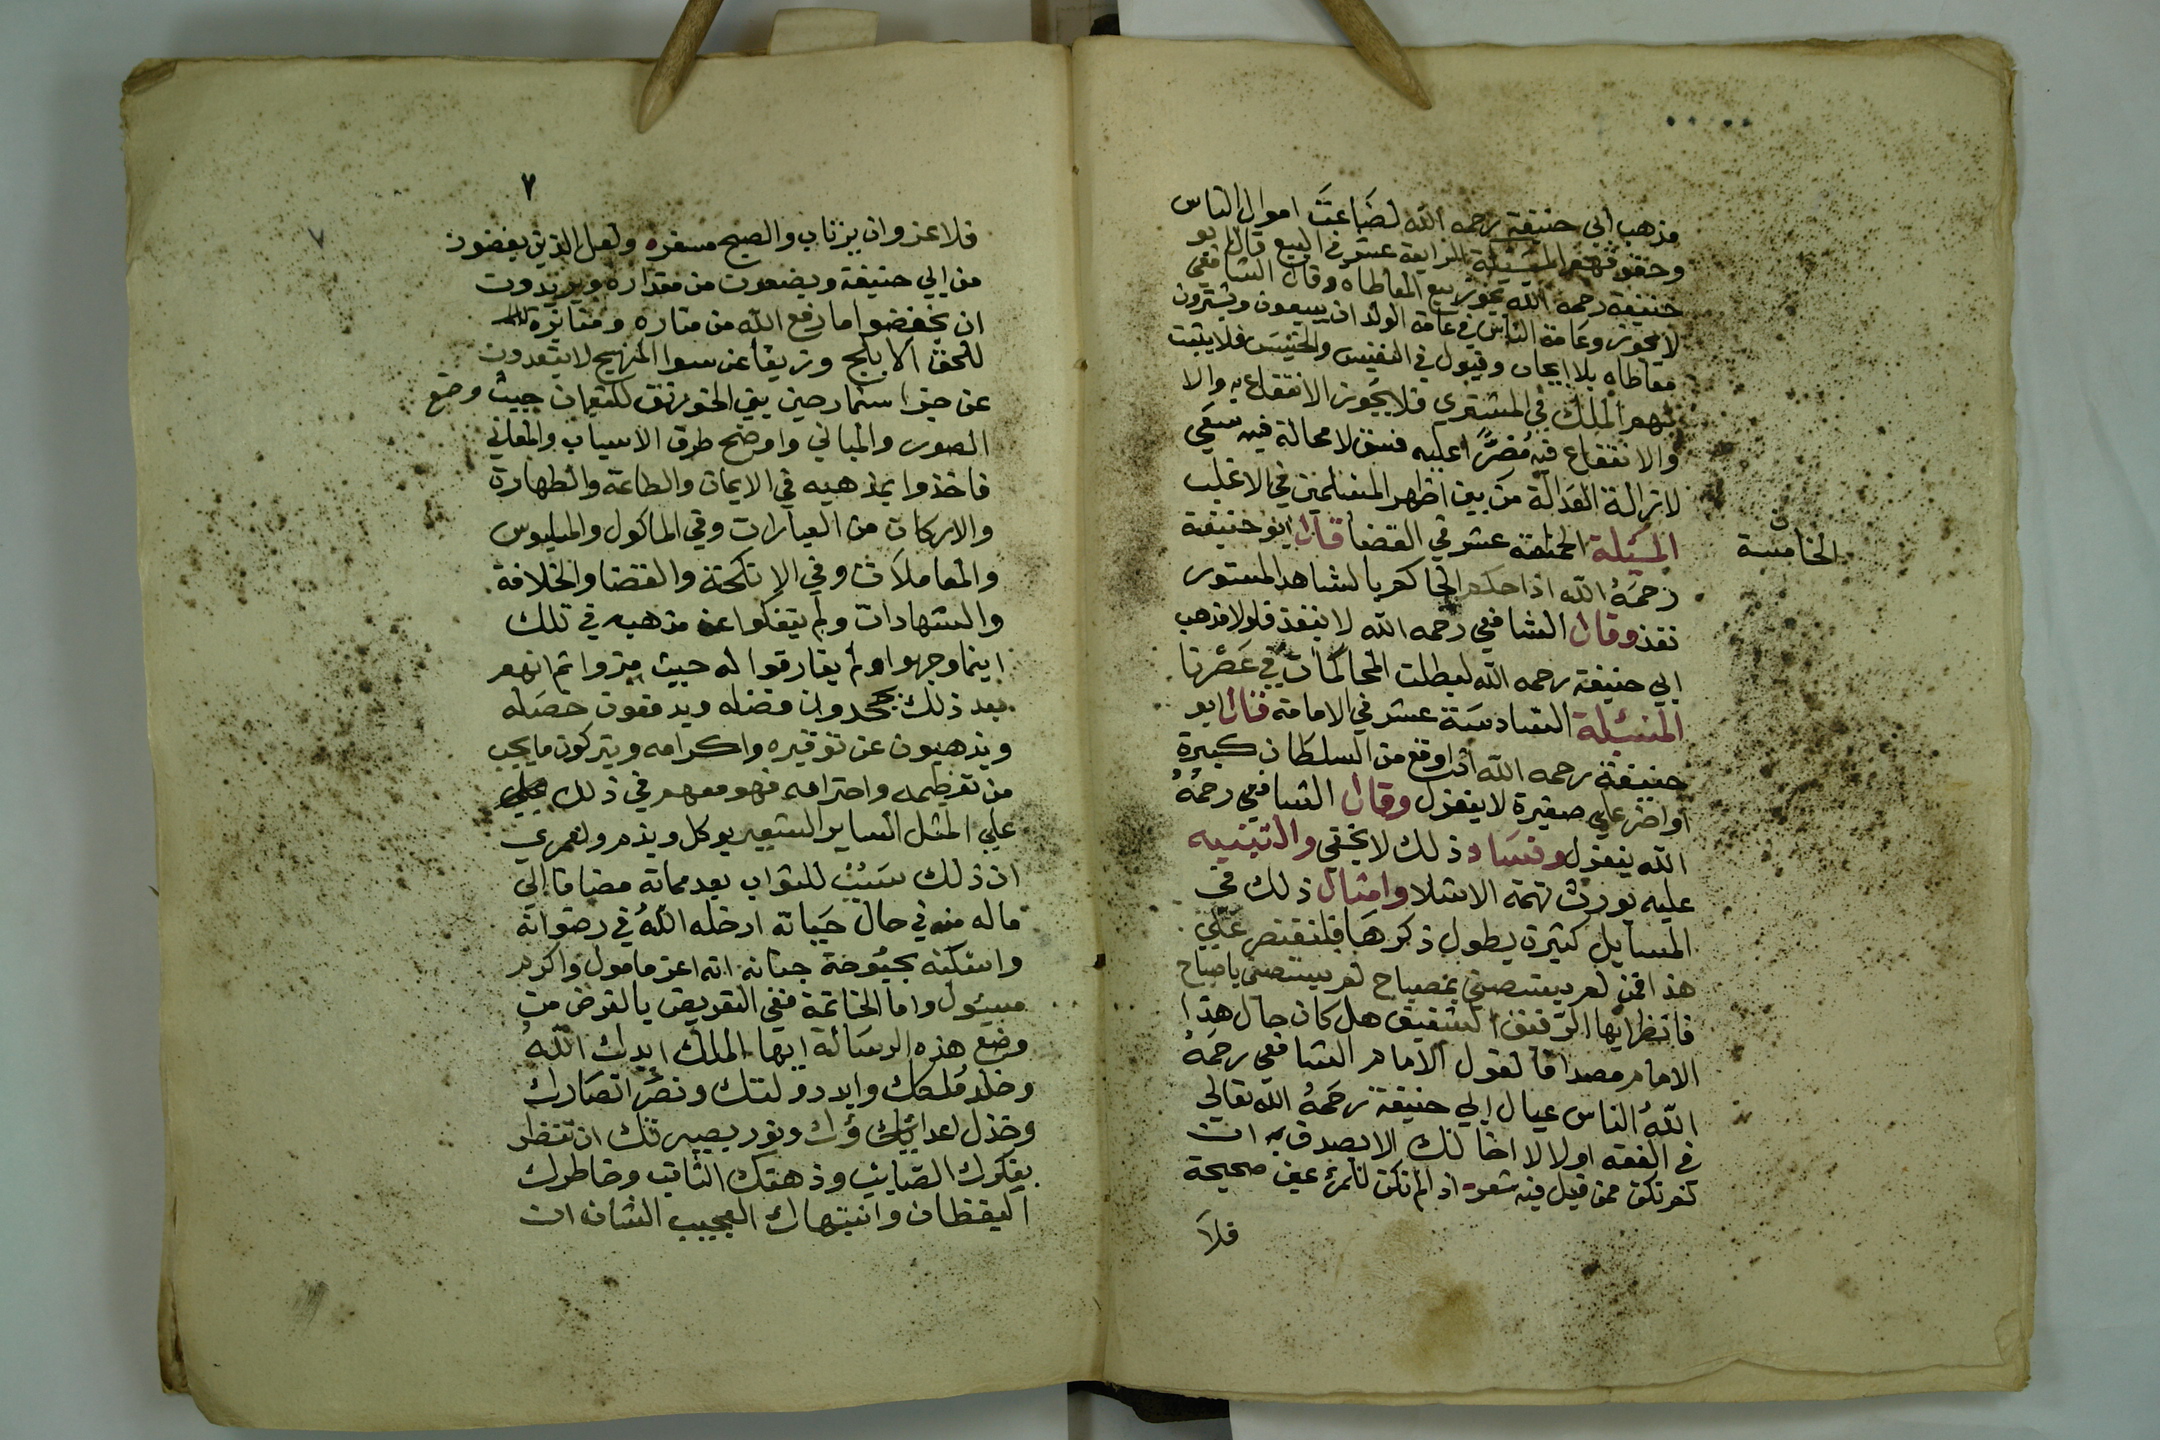 مذهب أبي حنيفة رحمه الله لضاعت اموال الناس
وحقوقهم المسئلة الرابعة عشر في البيع قال ابو
حنيفة رحمه الله يجوز بيع المعاطاه وقال الشافعي
لا يجوز وعامة الناس في عامة البلد ان يبيعون ويشترون
معاطاه بلا ايجاب وقبول في النفيس والخسيس فلا يثبت
لهم الملك في المشتري فلا يجوز الانتفاع به والا
والانتفاع فيه مُضرًّا عليه فسق لا محالة فيه سعَي
لازالة العدالة من بين اظهر المسلمين في الاغلب
المسئلة الخامسة عشر في القضا قال ابو حنيفة
الخامسة
رحمَهُ الله اذا حكم الحاكم بالشاهد المستور
نفذ وقال الشافعي رحمه الله لا ينفذ فلولا مذهب
ابي حنيفة رحمه الله لبطلت المحاكمات في عَصْرنا
المسئلة السادسة عشر في الامامة قال ابو
حنيفة رحمه الله اذا وقع من السلطان كبيرة
او اصر علي صغيرة لا ينعزل وقال الشافعي رحمَهُ
الله ينعزل وفساد ذلك لا يخفي والتنبيه
عليه يورث تهمة الابتلا وامثال ذلك في
المسايل كثيرة يطول ذكرها فلنقتصر علي
هذا فمن لم يستضي بمصباح لم يستضي باصباح
فانظر ايها الرفيق الشفيق هل كان حال هذا
الامام مصداقا لقول الامام الشافعي رحمَهُ
اللهُ الناس عيال ابي حنيفة رحمهُ الله تعالي
في الفقه اولا لا اخالك الا بصدق به ان
لم تكن ممن قيل فيه شعر اذ لم تكن للمرءِ عين صحيحة
فلا
٧
٧
فلا عزوان يرتاب والصبح مسفره ولعل الذين يغضون
من ابي حنيفة ويضعون من مقداره ويريدون
ان يخفضوا ما رفع الله من مناره ومنابزة
للحق الابلج وزيغا عن سوا المنهج لا يتعدون
عن جزا سنمار حين بني الخورنق للنعمان حيث وضع
الصور والمباني واوضح طرق الاسباب والمعاني
فاخذوا بمذهبه في الايمان والطاعة والطهارة
والاركان من العبارات وفي الماكول والملبوس
والمعاملات وفي الانكحة والقضا والخلافة
والشهادات ولم ينفكوا عن مذهبه في تلك
اينما وجهوا ولم يفارقوا له حيث مروا ثم انهم
بعد ذلك يجحدون فضله ويدفعون خصله
ويذهبون عن توقيره واكرامه ويتركون ما يجب
من تعظيمه واحترامه فهو معهم في ذلك
علي المثل الساير الشعير يوكل ويذم ولعمري
ان ذلك سَبَبٌ للثواب بعد مماته مضافا الي
ما له منه في حال حيَاته ادخله اللهُ في رضوانه
واسكنه بحبُوحة جنانه انه اعز مامول واكرم
مسئول واما الخاتمة ففي التعريض بالغرض من
وضع هذه الرسَالة ايها الملك ايدك اللهُ
وخلد مُلكك وايد دولتك ونصرَ انصارك
وخذل اعدائك ونور بصيرتك ان تنظر
بفكرك الصَايب وذهنك الثاقب وخاطرك
اليقظان وانتباهك العجيب الشان ان